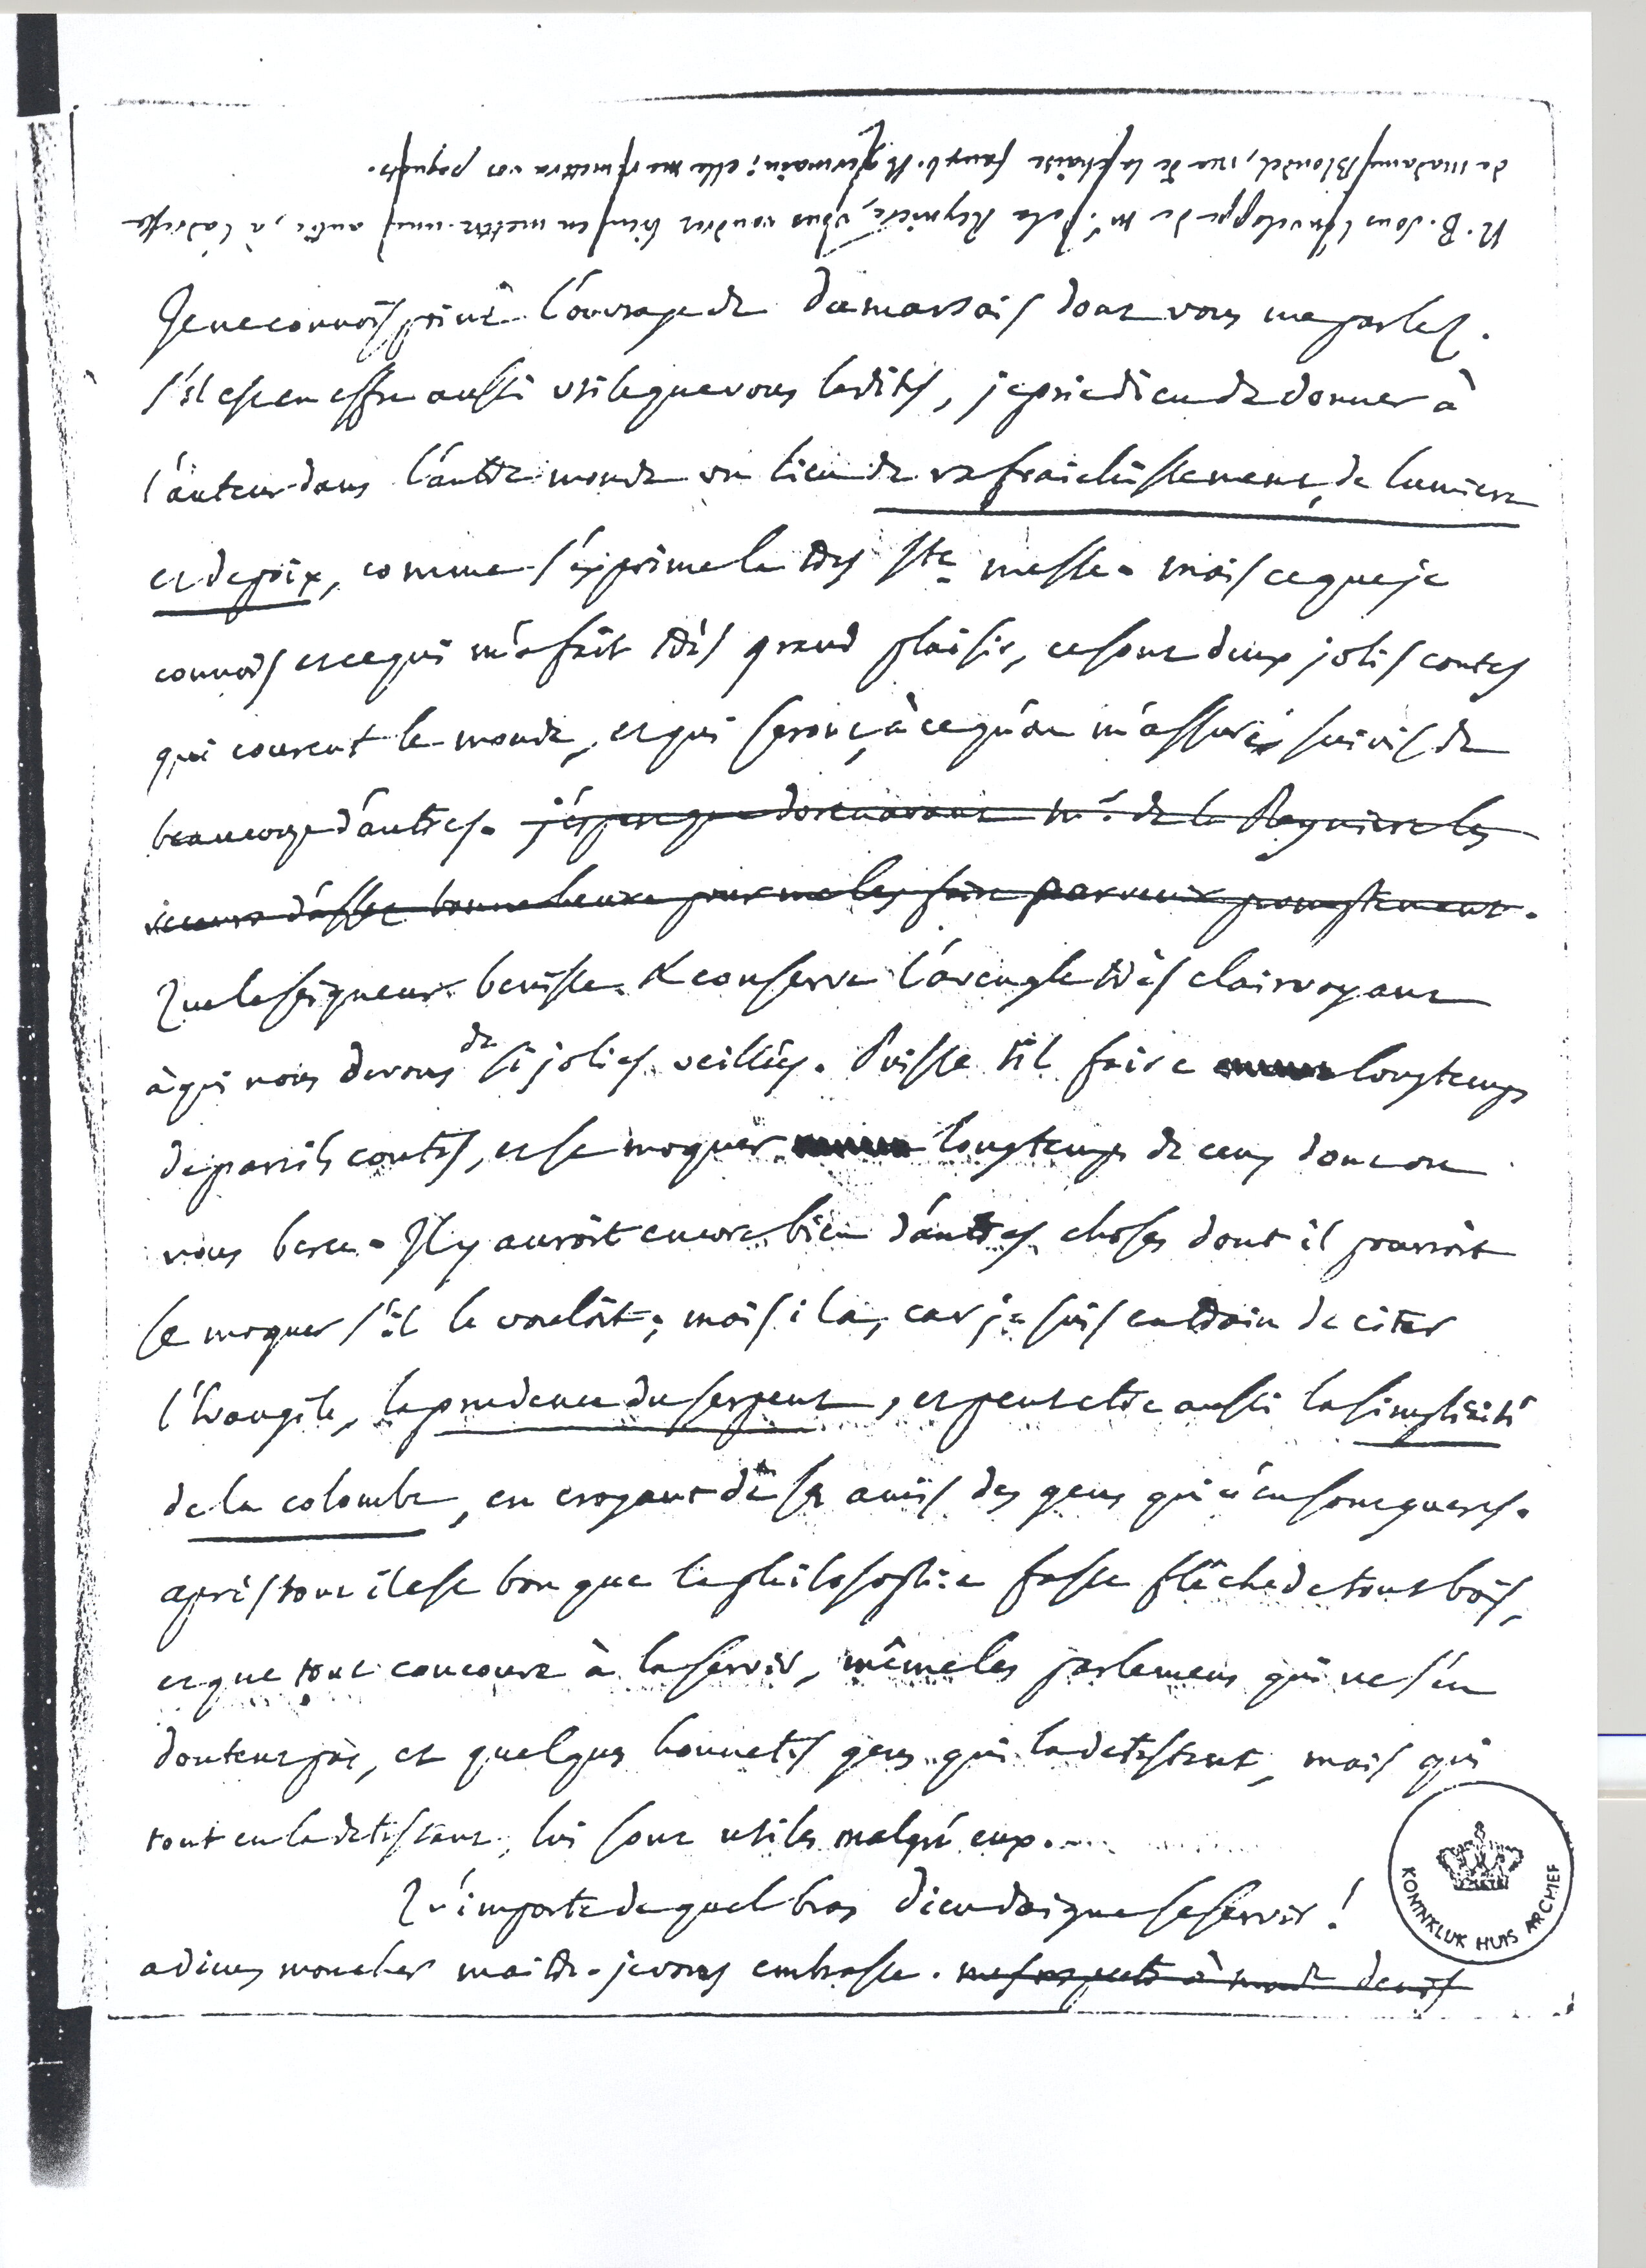 N.B. sous l'enveloppe de Mr. de la Reyniere, vous voudrez bien en mettre une autre, à l'adresse
de madame Blondel, rue de la chaise fauxb. St germain; elle me remettra vos paquets.
Je ne connois point l'ouvrage de dumarsais dont vous me parlez.
s'il est en effet aussi utile que vous le dites, je prie dieu de donner à
l'auteur dans l'autre monde un lieu de rafraichissement, de lumiere
et de paix, comme s'exprime la très Ste messe. mais ce que je
connois et ce qui m'a fait très grand plaisir, ce sont deux jolis contes
qui courent le monde, et qui seront, à ce qu'on m'assure, suivis de
beaucoup d'autres. j'éspere que dorenavant Mr. de la Reyniere les
recevra d'assez bonne heure pour me les faire parvenir promptement.
Que le seigneur benisse & conserve l'aveugle très clairvoyant
à qui nous devons de si jolies veillées. Puisse t'il faire longtemps
de pareils contes, et se moquer longtemps de ceux dont on
nous berce. Il y auroit encore bien d'autres choses dont il pourroit
se moquer s'il le vouloit; mais il a, car je suis en train de citer
l'Evangile, la prudence du serpent, et peut etre aussi la simplicité
de la colombe, en croyant de ses amis des gens qui n'en sont gueres.
après tout il est bon que la philosophie fasse flêche de tout bois,
et que tout concoure à la servir, même les parlemens qui ne s'en
doutent pas, et quelques honnetes gens qui la detestent, mais qui
tout en la detestant, lui sont utiles malgré eux.
Qu'importe de quel bras dieu daigne se servir!
adieu mon cher maitre. je vous embrasse. mes respects à made denis
KONINKLIJK HUIS ARCHIEF